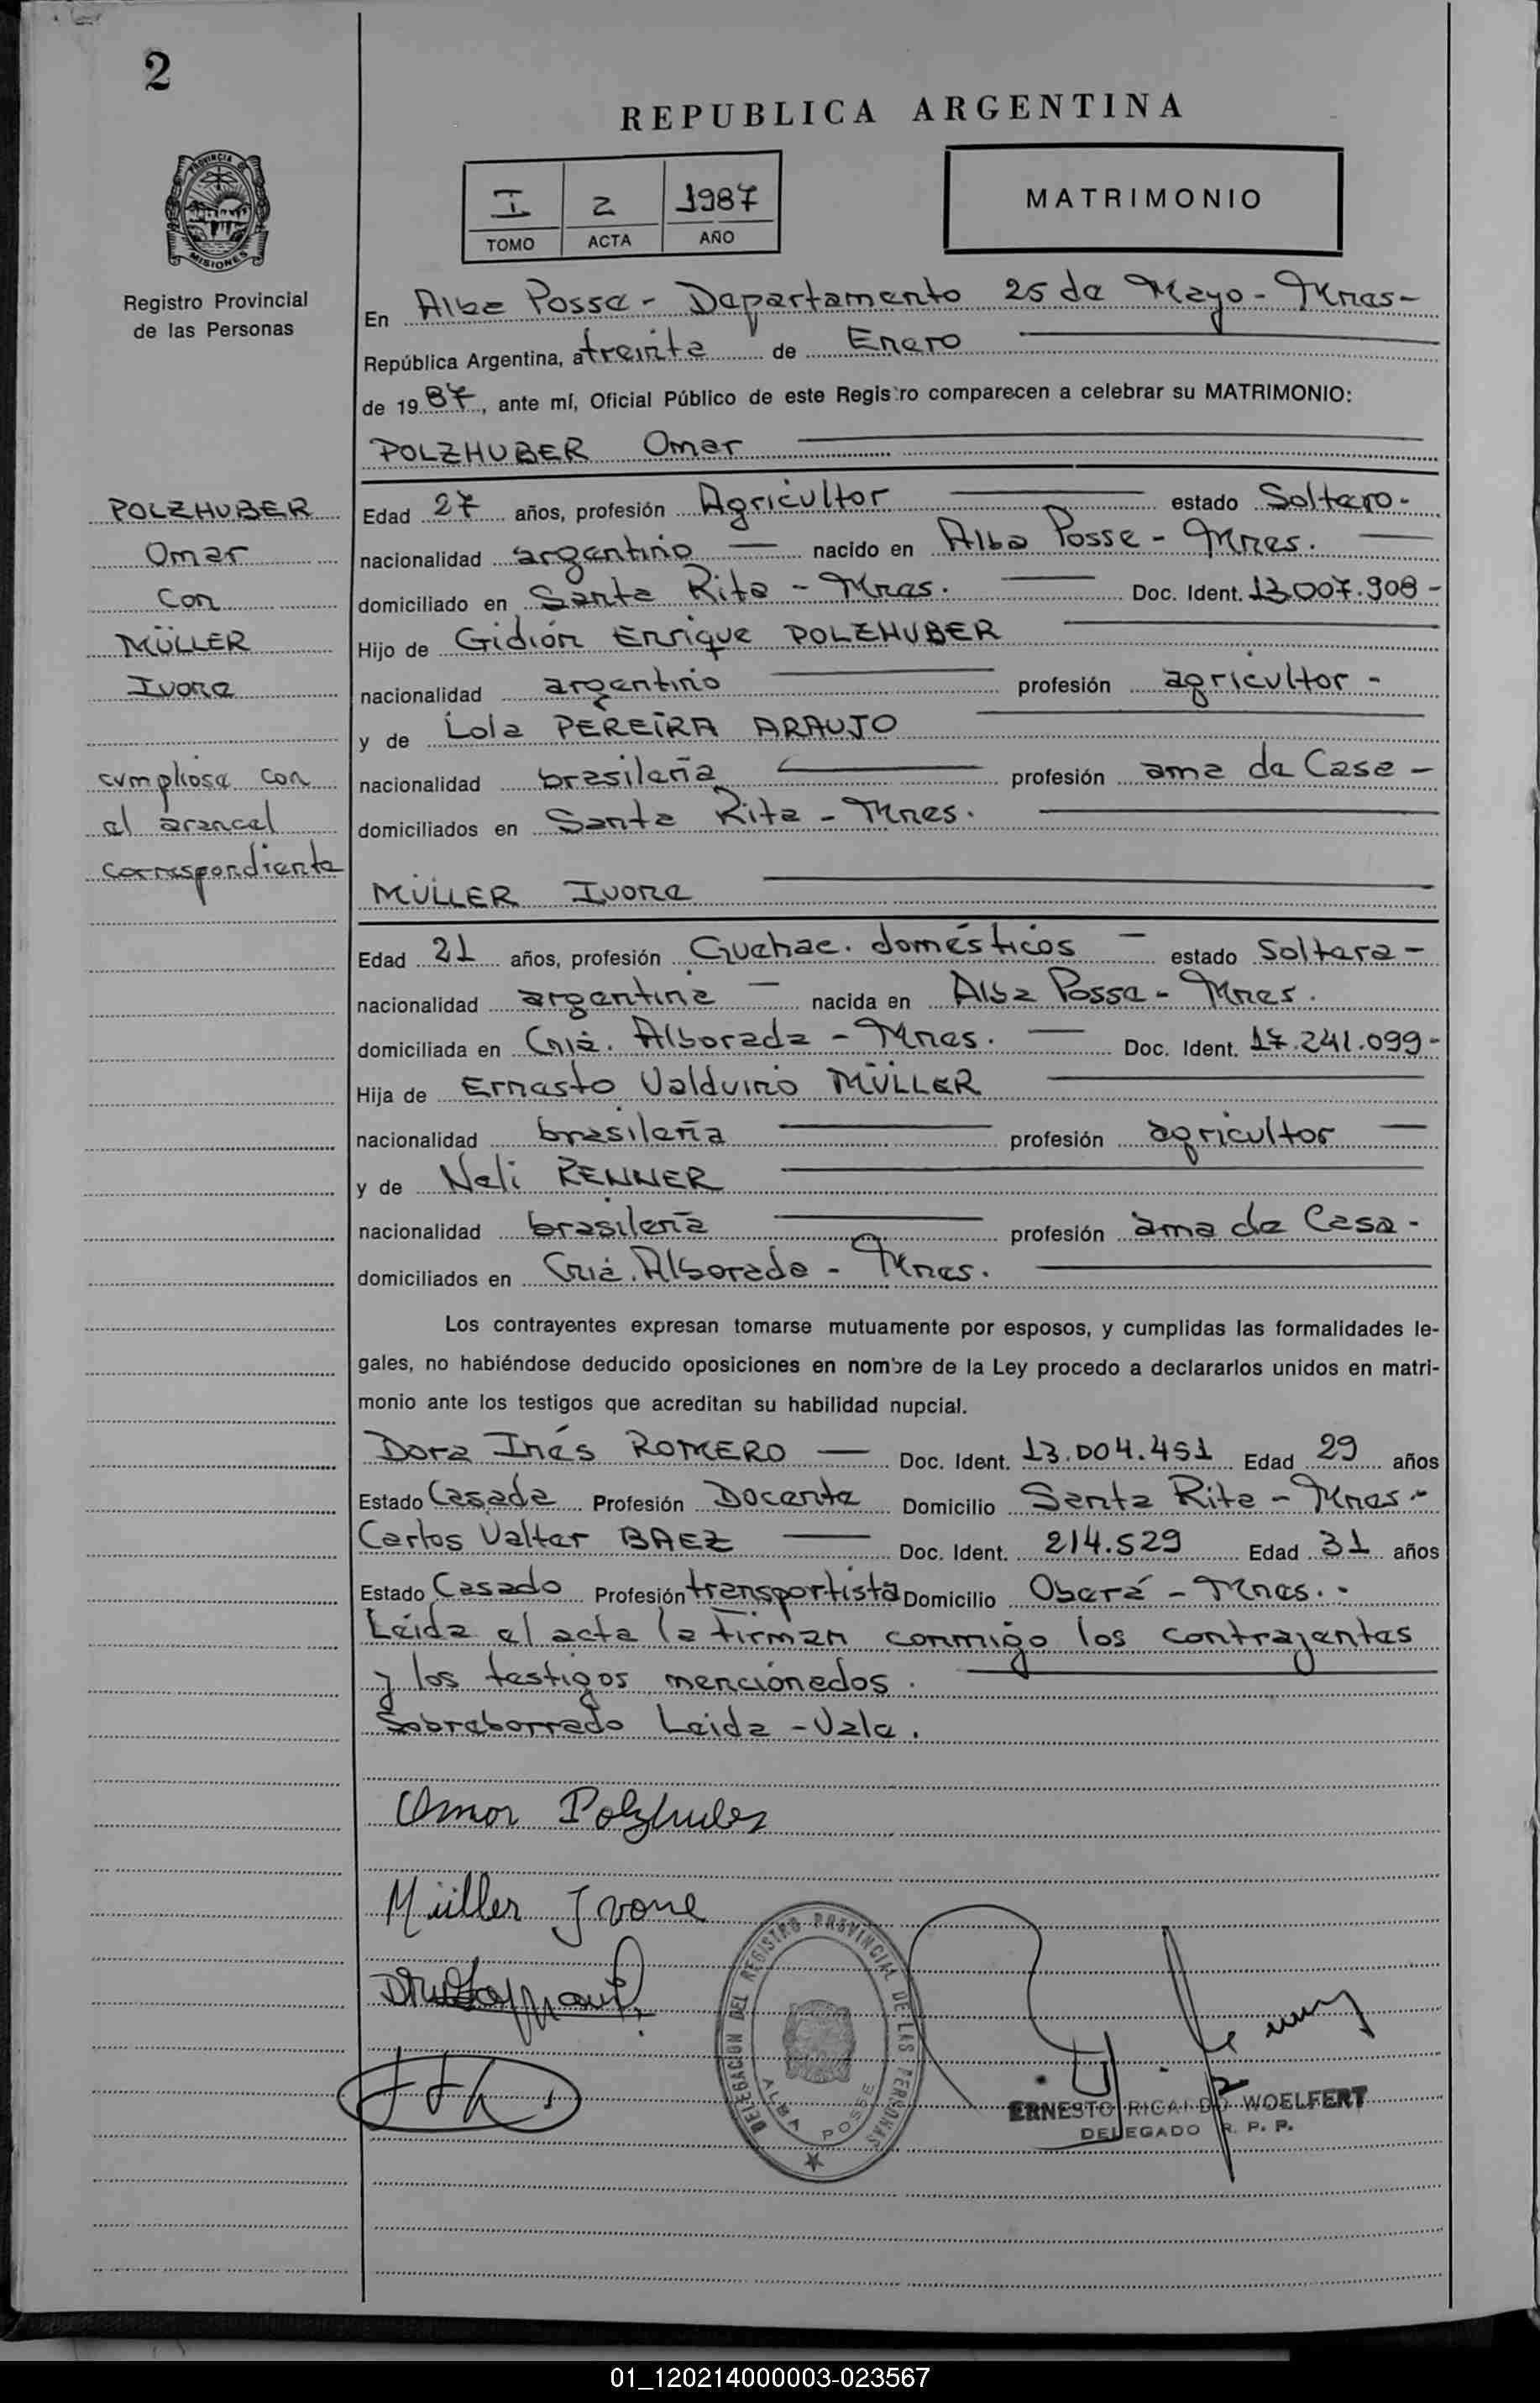 2
REPUBLICA ARGENTINA
I 2 1987
TOMO ACTA AÑO
MATRIMONIO
PROVINCIA
MISIONES
Registro Provincial
de las Personas
En Alba Posse - Departamento 25 de Mayo - Mnes-
República Argentina, a treinta de Enero
de 1987, ante mí, Oficial Público de este Registro comparecen a celebrar su MATRIMONIO:
POLZHUBER Omar
POLZHUBER
Omar
con
MÜLLER
Ivone
cumpliose con
el arancel
correspondiente
Edad 27 años, profesión Agricultor estado Soltero-
nacionalidad argentino nacido en Alba Posse - Mnes.
domiciliado en Santa Rita - Mnes. Doc. Ident. 13.007.908-
Hijo de Gidión Enrique POLZHUBER
nacionalidad argentino profesión agricultor -
y de Lola PEREIRA ARAUJO
nacionalidad brasileña profesión ama de Casa -
domiciliados en Santa Rita - Mnes.
MÜLLER Ivone
Edad 21 años, profesión Quehac. domésticos - estado Soltera -
nacionalidad argentina - nacida en Alba Posse - Mnes.
domiciliada en Cnia. Alborada - Mnes. Doc. Ident. 17.241.099-
Hija de Ernesto Valduino MÜLLER
nacionalidad brasileña profesión agricultor -
y de Neli RENNER
nacionalidad brasileña profesión ama de Casa -
domiciliados en Cnia. Alborada - Mnes.
Los contrayentes expresan tomarse mutuamente por esposos, y cumplidas las formalidades le-
gales, no habiéndose deducido oposiciones en nombre de la Ley procedo a declararlos unidos en matri-
monio ante los testigos que acreditan su habilidad nupcial.
Dora Inés ROMERO - Doc. Ident. 13.004.451 Edad 29 años
Estado Casada Profesión Docente Domicilio Santa Rita - Mnes -
Carlos Valter BAEZ - Doc. Ident. 214.529 Edad 31 años
Estado Casado Profesión transportista Domicilio Oberá - Mnes. -
Leida el acta la firman conmigo los contrayentes
y los testigos mencionados.
Sobreborrado Leida - Vale.
Omar Polzhuber
Müller Ivone
DELEGACION DEL REGISTRO PROVINCIAL DE LAS PERSONAS
ALBA POSSE
ERNESTO RICARDO WOELFERT
DELEGADO R. P. P.
01_120214000003-023567